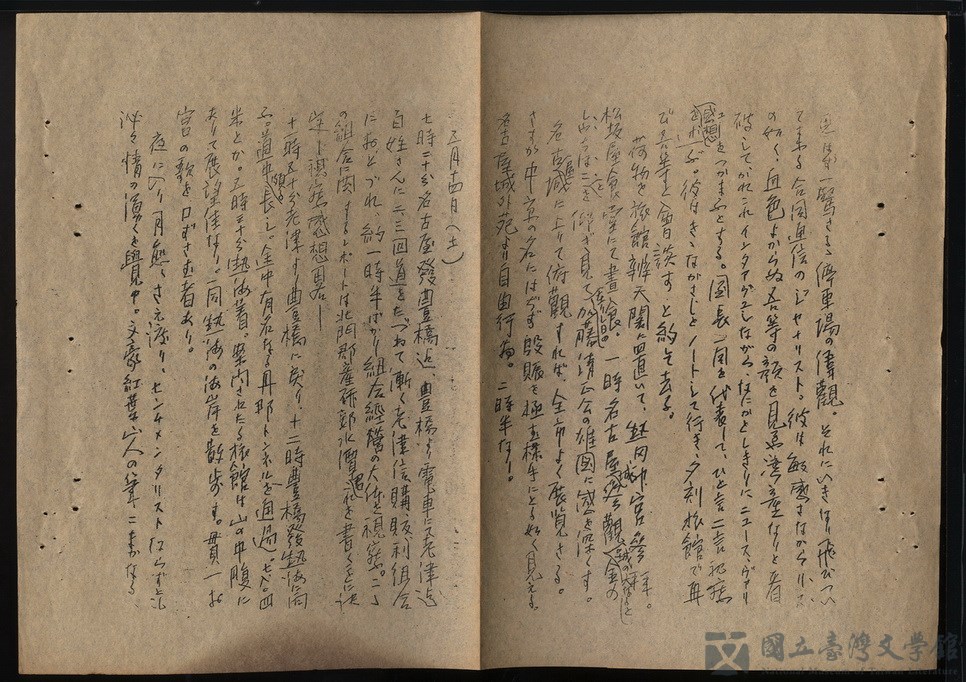 思はず一驚する停車場の偉觀。それにいきなり飛びつい
て來る合同通信のジャナリスト。彼は敏感
の如く、血色よからぬ吾等の顔を見
破してかれこれインタアヴューしながら、なにかとしきりにニュースヴァリ
ューをつかまふとする。團長一同を代表して、ひと言二言視察
感想
をのぶ。彼はきゝながらノートして行き、夕刻旅館で再
び吾等と會談すと約して去る。
荷物を旅館辨天閣に置いて、熱田神宮參拜。
松坂屋食堂にて晝食。一時名古屋城を觀
を仰ぎ見て加藤清正公の雄圖に感を深くす。
名古屋城に上りて俯觀すれば、全市よく展覧できる。
さすが中京の名にはぢず殷賑を極む樣手にとる如く見える。
名古屋城外苑より自由行動。二時半なり。
三月十四日(土)
七時二十分名古屋發豊橋迄、豊橋より電車にて老津迄
百姓さんに二三回道をたづねて漸く老津信購販利組合
におとづれ、約一時半ばかり組合經營の大体を視察。こゝ
の組合に関するレポートは北門郡產研郭水潭君が書くことに決
定―視察感想畧―
十一時五十分老津より豊橋に戾り、十二時豊橋發熱海に向
ふ。道中長し。途中有名なる丹那トンネルを通過、七、八〇四
米とか。三時三十分熱海着。案内されたる旅館は山の中腹に
ありて展望佳なり。一同熱海の海岸を散歩す。貫一お
宮の歌を口ずさむ者あり。
夜に入り月皎々さえ渡り、センチメンタリストならずとも
漫々情の湧くを覺ゆ。文豪紅葉山人の筆になる